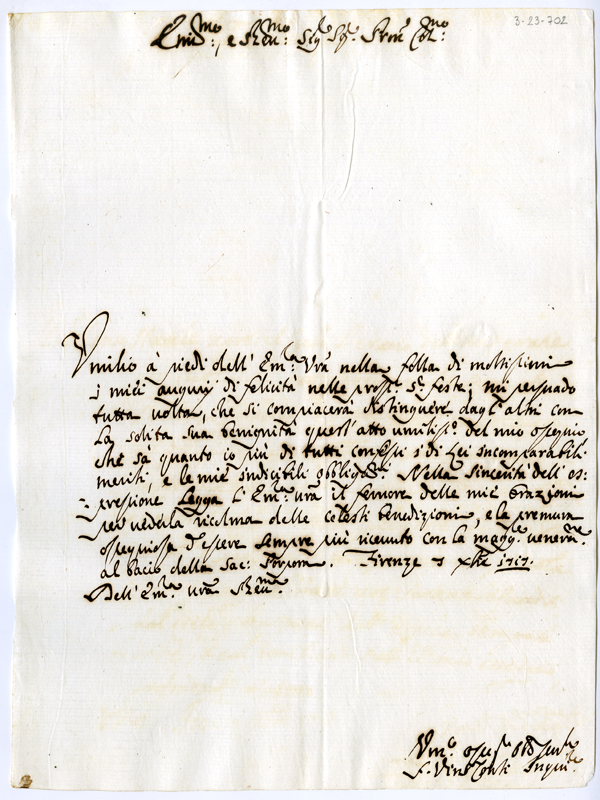 3-23-702
Em.mo, e Reu.mo Sig.r Sig.r Pron Col.mo
Vmilio à piedi dell' Em.a Vrã nella folla di moltissimi
i miei augurij di felicità nelle pross.e S.te feste; mi persuado
tutta volta, che si compiacerà distinguere dagl' altri con
la solita sua benignità quest' atto umiliss.o del mio ossequio
che sà quanto io più di tutti confessi i di Lei incomparabili
meriti, e le mie indicibili obbligaz.i Nella sincerità dell' es:
:pressione Legga l' Em.a vrã il feruore delle mie Orazioni
per vederla ricolma delle celesti benedizioni, e la premura
ossequiosa d' essere sempre più riceuuto con la magg.re venerãe
al bacio della Sac: Porpora. Firenze xbre 1717.
Dell' Em.a vrã Reu.ma
Vm.o
F. Vinc Conti Inqui.re